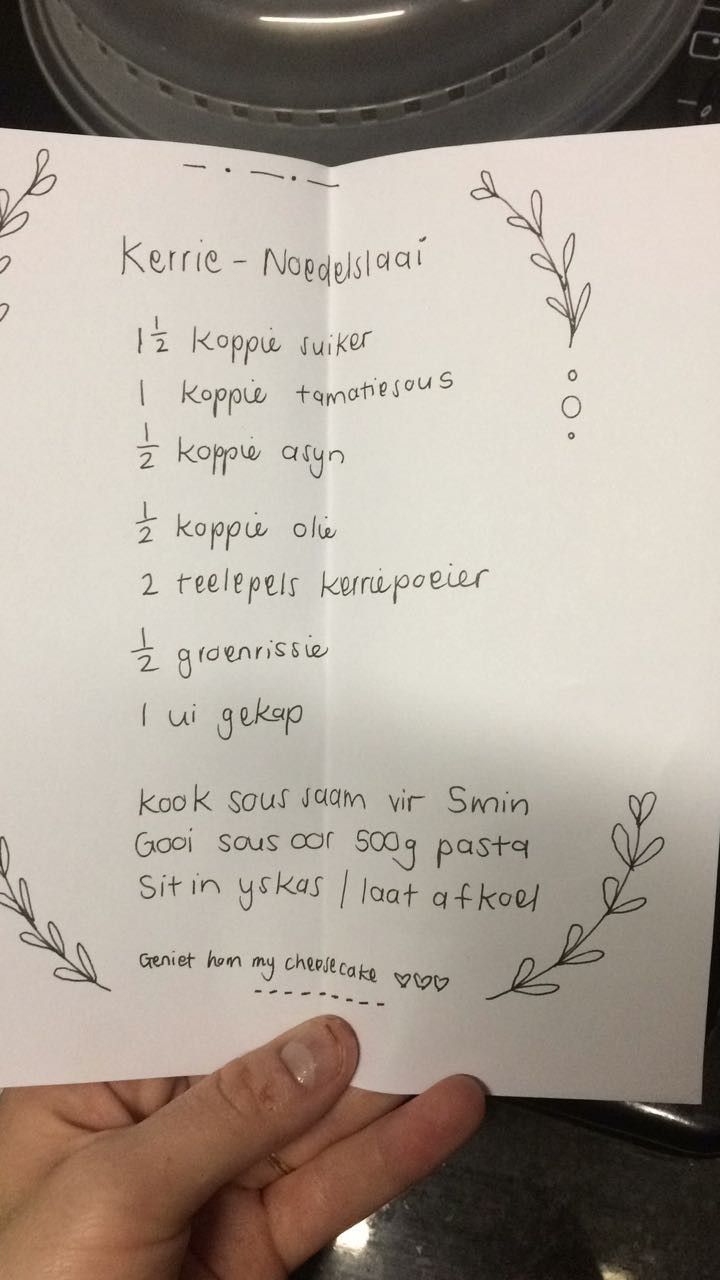 Kerrie - Noedelslaai
1 1/2 koppie suiker
1 koppie tamatiesous
1/2 koppie asyn
1/2 koppie olie
2 teelepels kerriepoeier
1/2 groenrissie
1 ui gekap
kook sous saam vir 5min
Gooi sous oor 500g pasta
Sit in yskas / laat afkoel
Geniet hom my cheesecake ♡♡♡